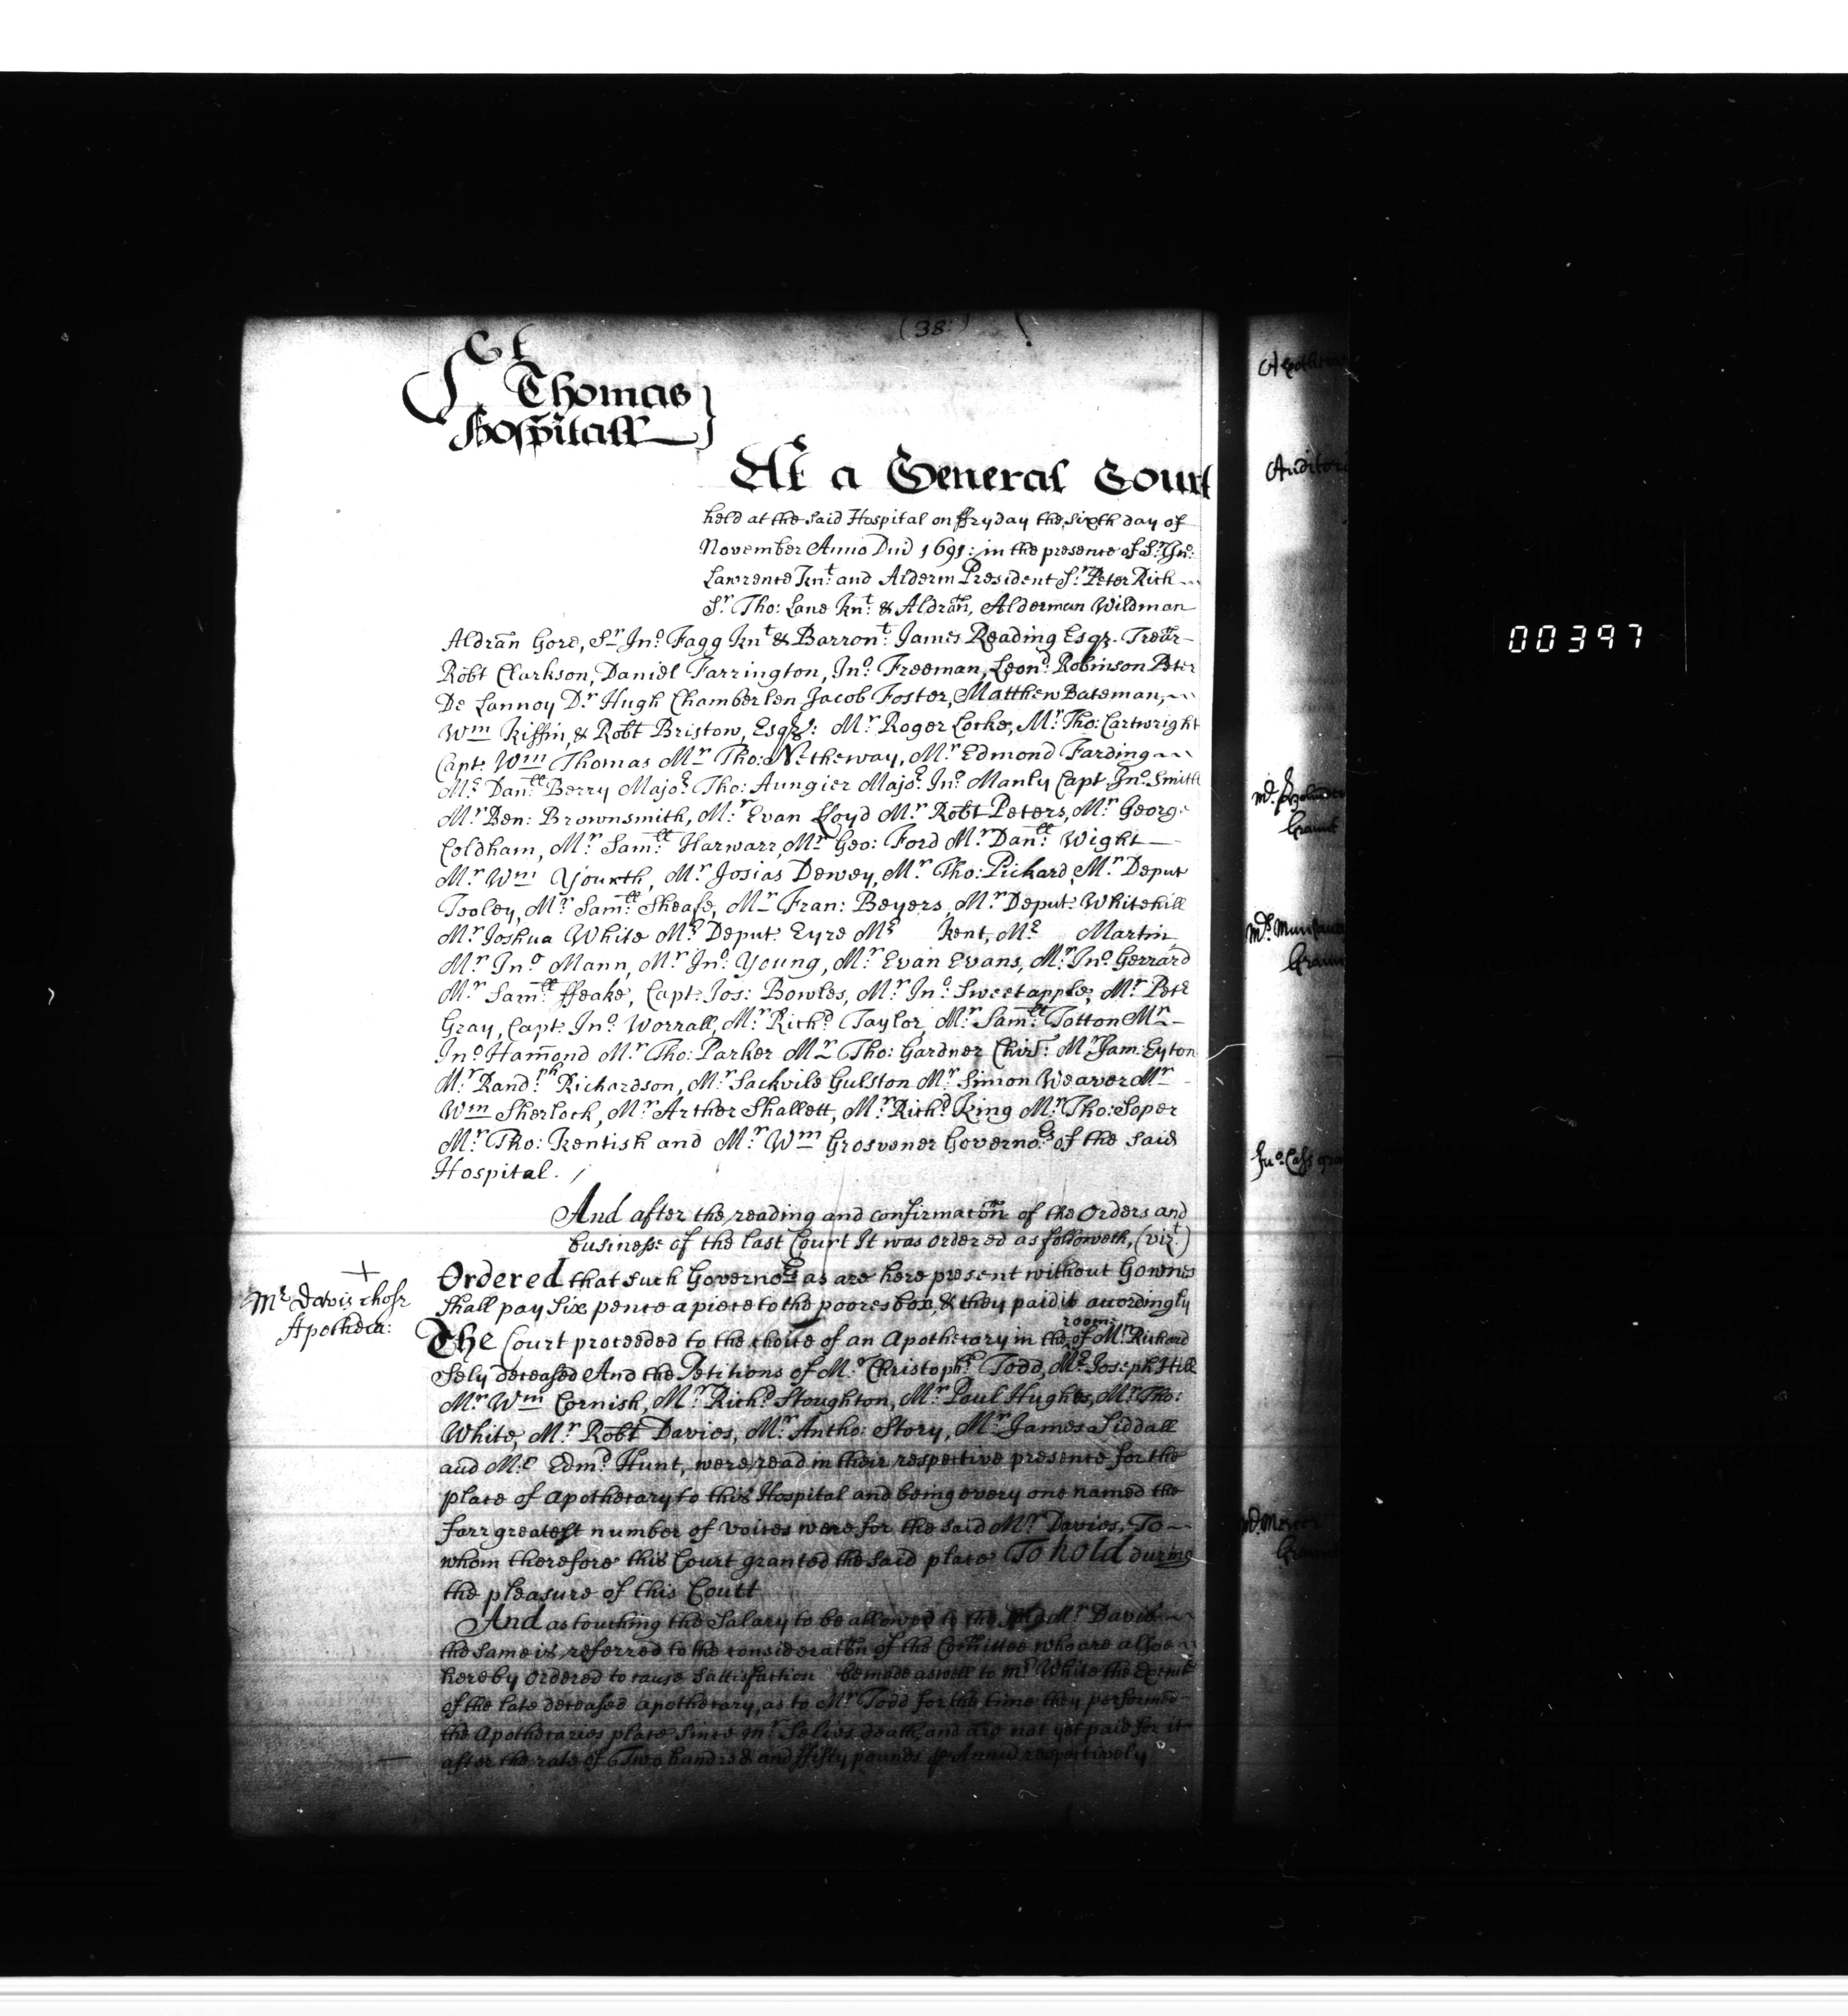 (38:)
St
Thomas
Hospitall
At a General Court
held at the said Hospital on ffryday the sixth day of
November Anno Dnī 1691: in the presence of Sr. Jno:
Lawrence Knt. and Alderm President Sr. Peter Rich
Sr. Tho: Lane Knt. & Aldrān, Alderman Wildman
Aldrān Gore, Sr Jno. Fagg Knt & Barront. James Reading Esqr. Treār-
Robt Clarkson, Daniel Farrington, Jno. Freeman, Leond. Robinson Peter
De Lannoy Dr. Hugh Chamberlen Jacob Foster, Matthew Bateman,
Wm Kiffin, & Robt Bristow, Esqrs: Mr. Roger Locke, Mr. Tho: Cartwright
Capt. Wm Thomas Mr Tho: Netheway, Mr. Edmond Farding
Mr. Danll. Berry Major. Tho: Aungier Major. Jno. Manly Capt. Jno. Smith
Mr. Ben: Brownsmith, Mr. Evan Lloyd Mr. Robt Peters, Mr. George
Coldham, Mr. Samll. Harwarr, Mr Geo: Ford Mr. Danll. Wight
Mr. Wm Yourth, Mr. Josias Dewey, Mr. Tho: Pickard, Mr. Deput
Tooley, Mr. Samll. Sheafe, Mr Fran: Beyers, Mr. Deput: Whitehill
Mr. Joshua White Mr. Deput: Eyre Mr. Kent, Mr. Martin,
Mr. Jno Mann, Mr. Jno. Young, Mr. Evan Evans, Mr. Jno. Gerrard
Mr. Samll. ffeake, Capt: Jos: Bowles, Mr. Jno. Sweetapple, Mr. Petr
Gray, Capt: Jno. Worrall, Mr. Richd. Taylor, Mr. Samll. Totton Mr.
Jno. Hamōnd Mr. Tho: Parker Mr Tho: Gardner Chirs. Mr. Jam: Eyton
Mr. Randph. Richardson, Mr. Sackvile Gulston Mr. Simon Weaver Mr
Wm Sherlock, Mr. Arther Shallett, Mr. Richd. King Mr. Tho: Soper
Mr. Tho: Kentish and Mr. Wm Grosvener Governors of the said
Hospital. /
And after the reading and confirmacōn of the Orders and
business of the last Court It was ordered as followeth, (vizt.)
Mr. Davis chosr
Apotheca:
Ordered that such Governors as are here present without Gownes
shall pay six pence a piece to the poores box, & they paid it accordingly
The Court proceeded to the choice of an Apothecary in the room of Mr. Richard
Sely deceased And the Petitions of Mr. Christophr. Todd, Mr. Joseph Hill
Mr. Wm Cornish, Mr. Richd. Stoughton, Mr. Paul Hughes, Mr. Tho:
White, Mr. Robt Davies, Mr. Antho: Story, Mr. James Siddall
and Mr. Edmd. Hunt, were read in their respective presence for the
place of Apothecary to this Hospital and being every one named the
farr greatest number of voices were for the said Mr. Davies, To
whom therefore this Court granted the said place To hold during
the pleasure of this Coutt
And as touching the Salary to be allowed to the Mr. Davis
the same is referred to the consideratōn of the Comittee who are alsoe
hereby Ordered to cause satisfaction be made aswell to Mr. White the Execut
of the late deceased Apothecary, as to Mr Todd for the time they performed
the Apothecaries place since Mr. Selies death, and are not yet paid for it
after the rate of Two hundred and ffifty pounds p Annu respectively
Auditors
00397